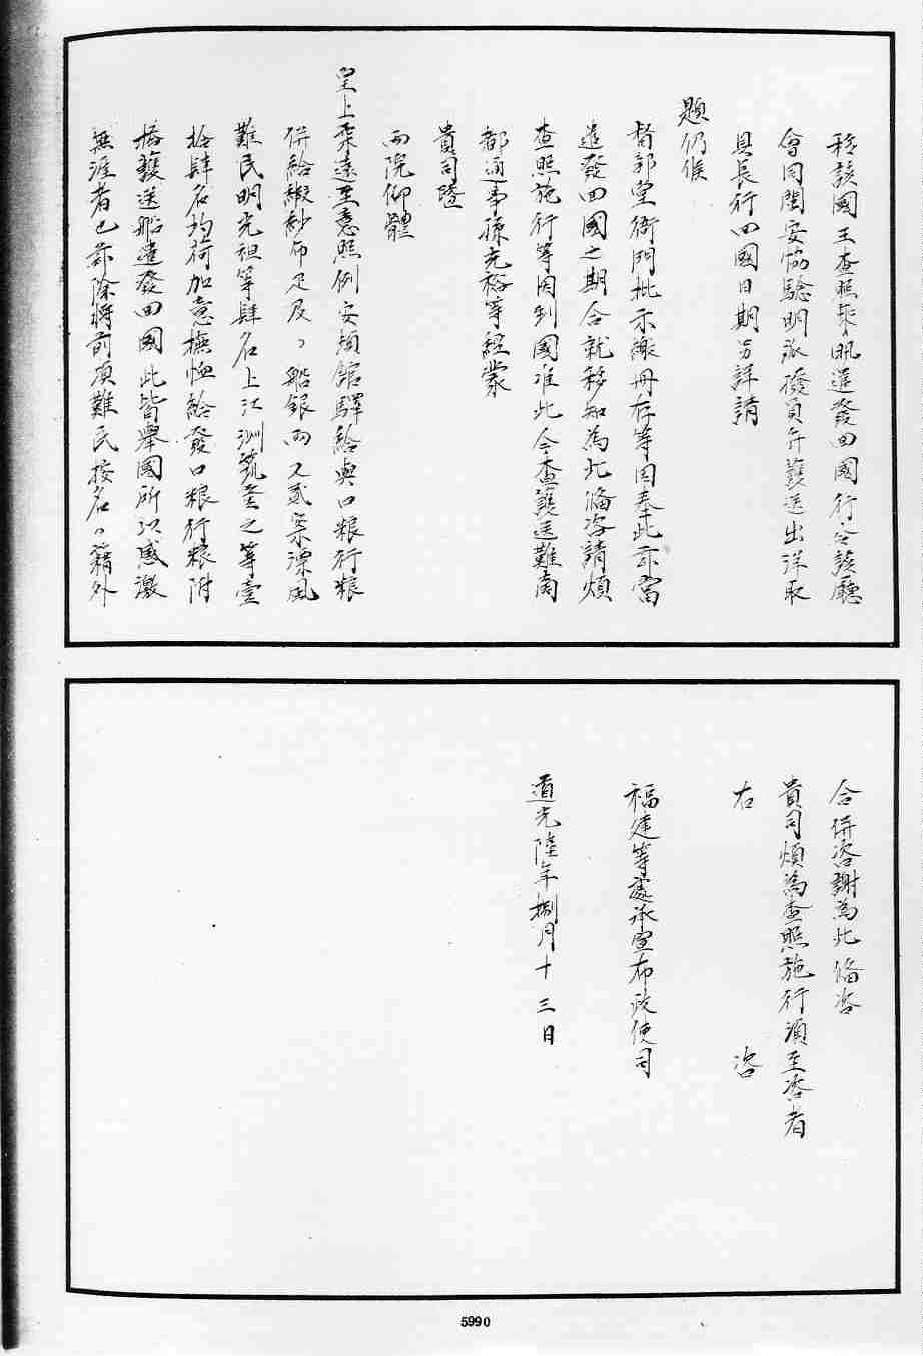 移該國王查照乘帆遣發回國行令該廳
會同閩安協驗明派撥員弁護送出洋取
具長行回國日期另詳請
題仍候
督部堂衙門批示繳冊存等因奉此亦當
遣發回國之期合就移知為此備咨請煩
查照施行等因到國准此今查護送難商
都通事孫光裕等經蒙
貴司暨
兩院仰體
皇上柔遠至意照例安頓館驛給與口粮行粮
併給緞紗布疋及〻船銀兩又貳案漂風
難民明光祖等肆名上江洲筑登之等壹
拾肆名均荷加意撫恤給發口粮行粮附
搭護送船遣發回國此皆舉國所以感激
無涯者也除將前項難民按名〻籍外
合併咨謝為此備咨
貴司煩為查照施行須至咨者
右　　　　　　咨
福建等處承宣布政使司
道光陸年捌月十三日
5990